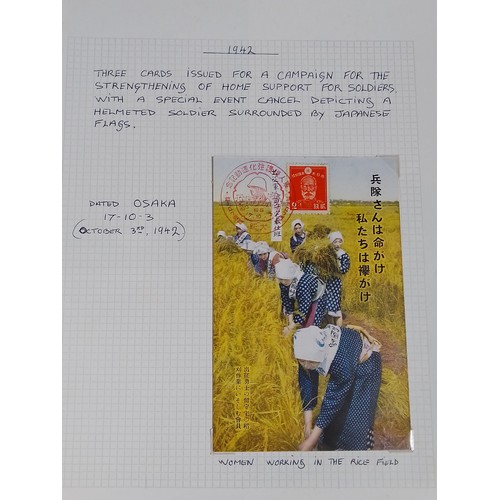 1942
THREE CARDS ISSUED FOR A CAMPAIGN FOR THE
STRENGTHENING OF HOME SUPPORT FOR SOLDIERS,
WITH A SPECIAL EVENT CANCEL DEPICTING A
HELMETED SOLDIER SURROUNDED BY JAPANESE
FLAGS.
DATED OSAKA
17-10-3
(OCTOBER 3RD, 1942)
兵隊さんは命がけ
私たちは襷がけ
WOMEN WORKING IN THE RICE FIELD